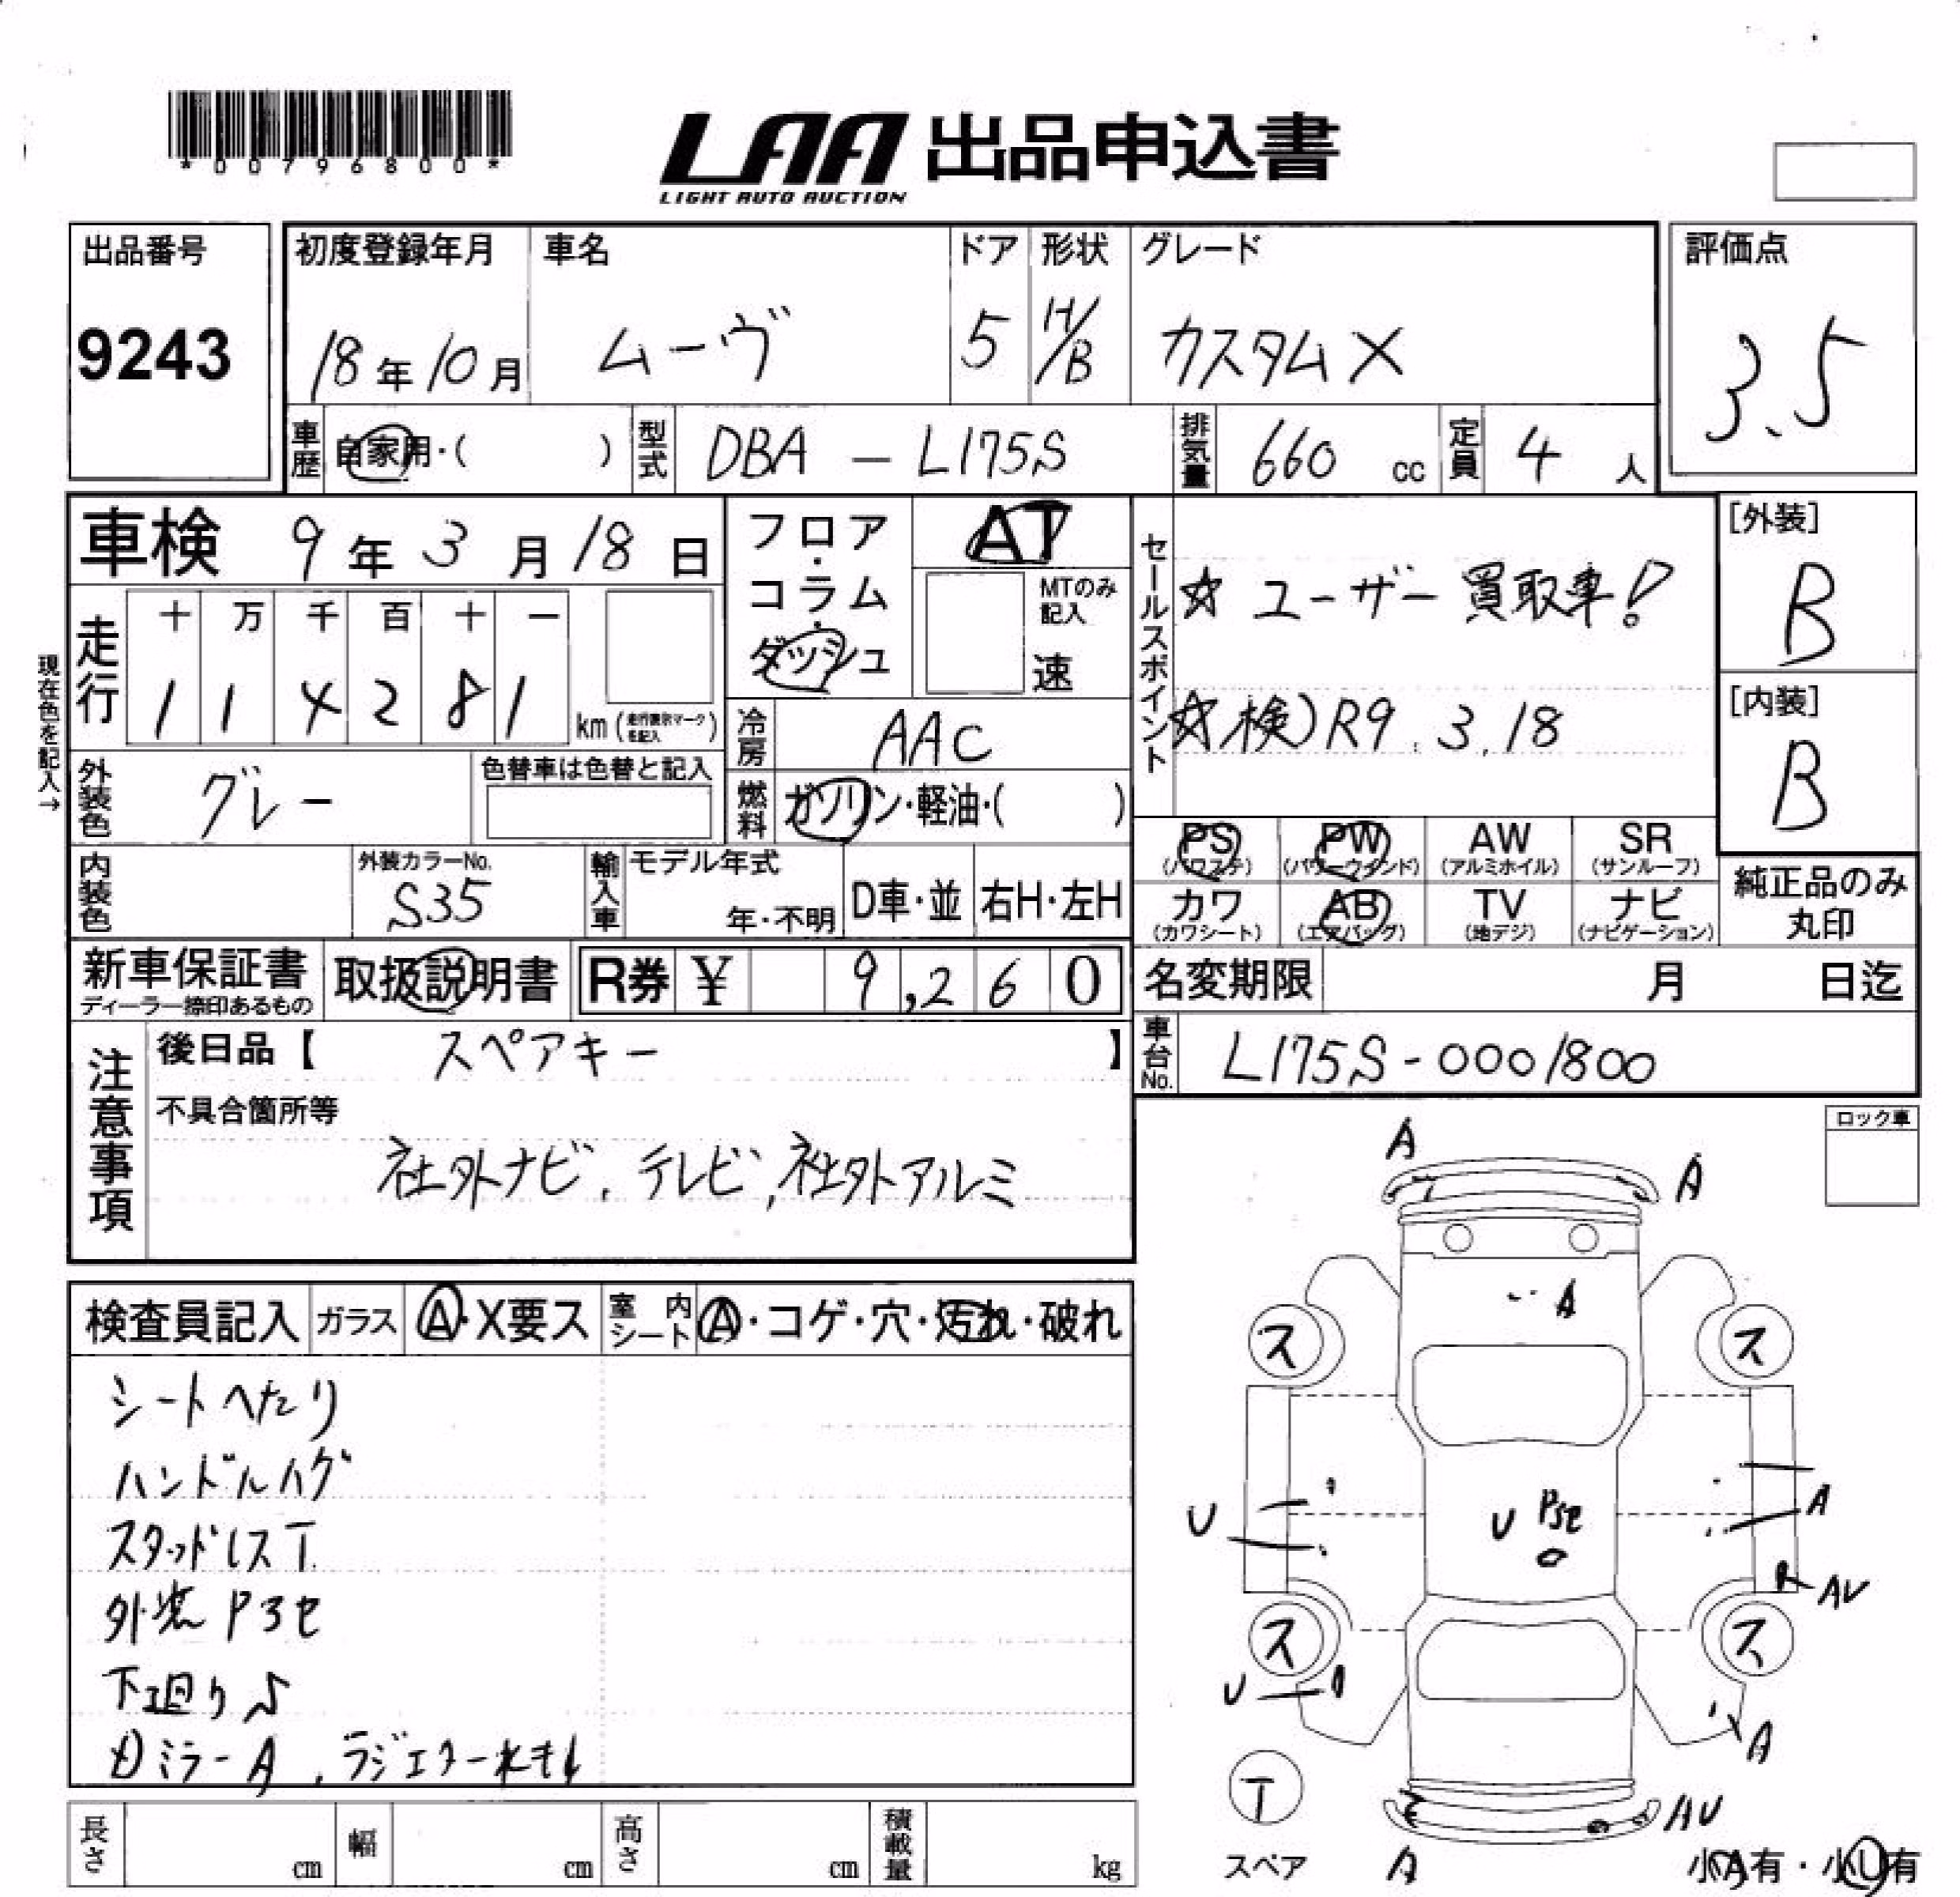 *00796800*
LAA 出品申込書
LIGHT AUTO AUCTION
出品番号
9243
初度登録年月
18年10月
車名
ムーヴ
ドア
5
形状
H/B
グレード
カスタムX
評価点
3.5
車歴
自家用・( )
型式
DBA - L175S
排気量
660 cc
定員
4 人
車検 9年3月18日
フロア・コラム・ダッシュ
AT
MTのみ記入
速
セールスポイント
☆ ユーザー買取車!
☆検)R9.3.18
[外装]
B
[内装]
B
現在色を記入→
走行
十 万 千 百 十 一
1 1 4 2 8 1
km (走行表示マークを記入)
冷房
AAC
燃料
ガソリン・軽油・( )
外装色
グレー
色替車は色替と記入
内装色
外装カラーNo.
S35
輸入車
モデル年式
年・不明
D車・並
右H・左H
PS (パワステ)
PW (パワーウィンド)
AW (アルミホイル)
SR (サンルーフ)
カワ (カワシート)
AB (エアバッグ)
TV (地デジ)
ナビ (ナビゲーション)
純正品のみ丸印
新車保証書
ディーラー捺印あるもの
取扱説明書
R券 ¥ 9,260
名変期限 月 日迄
車台No.
L175S-0001800
注意事項
後日品【 スペアキー 】
不具合箇所等
社外ナビ,テレビ,社外アルミ
ロック車
検査員記入
ガラス
A・X要ス
室内シート
A・コゲ・穴・汚れ・破れ
シートへたり
ハンドルハゲ
スタッドレスT
外装
下廻りS
ミラーA,ラジエター水もレ
A
A
A
ス
ス
U
U
A
AU
ス
ス
U
A
T
スペア
AU
A
小A有・小U有
長さ cm
幅 cm
高さ cm
積載量 kg